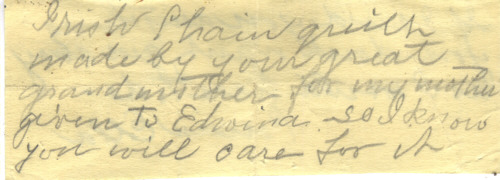 Irish Chain quilt
made by your great
grandmother for my mother
given to Edwina so I know
you will care for it